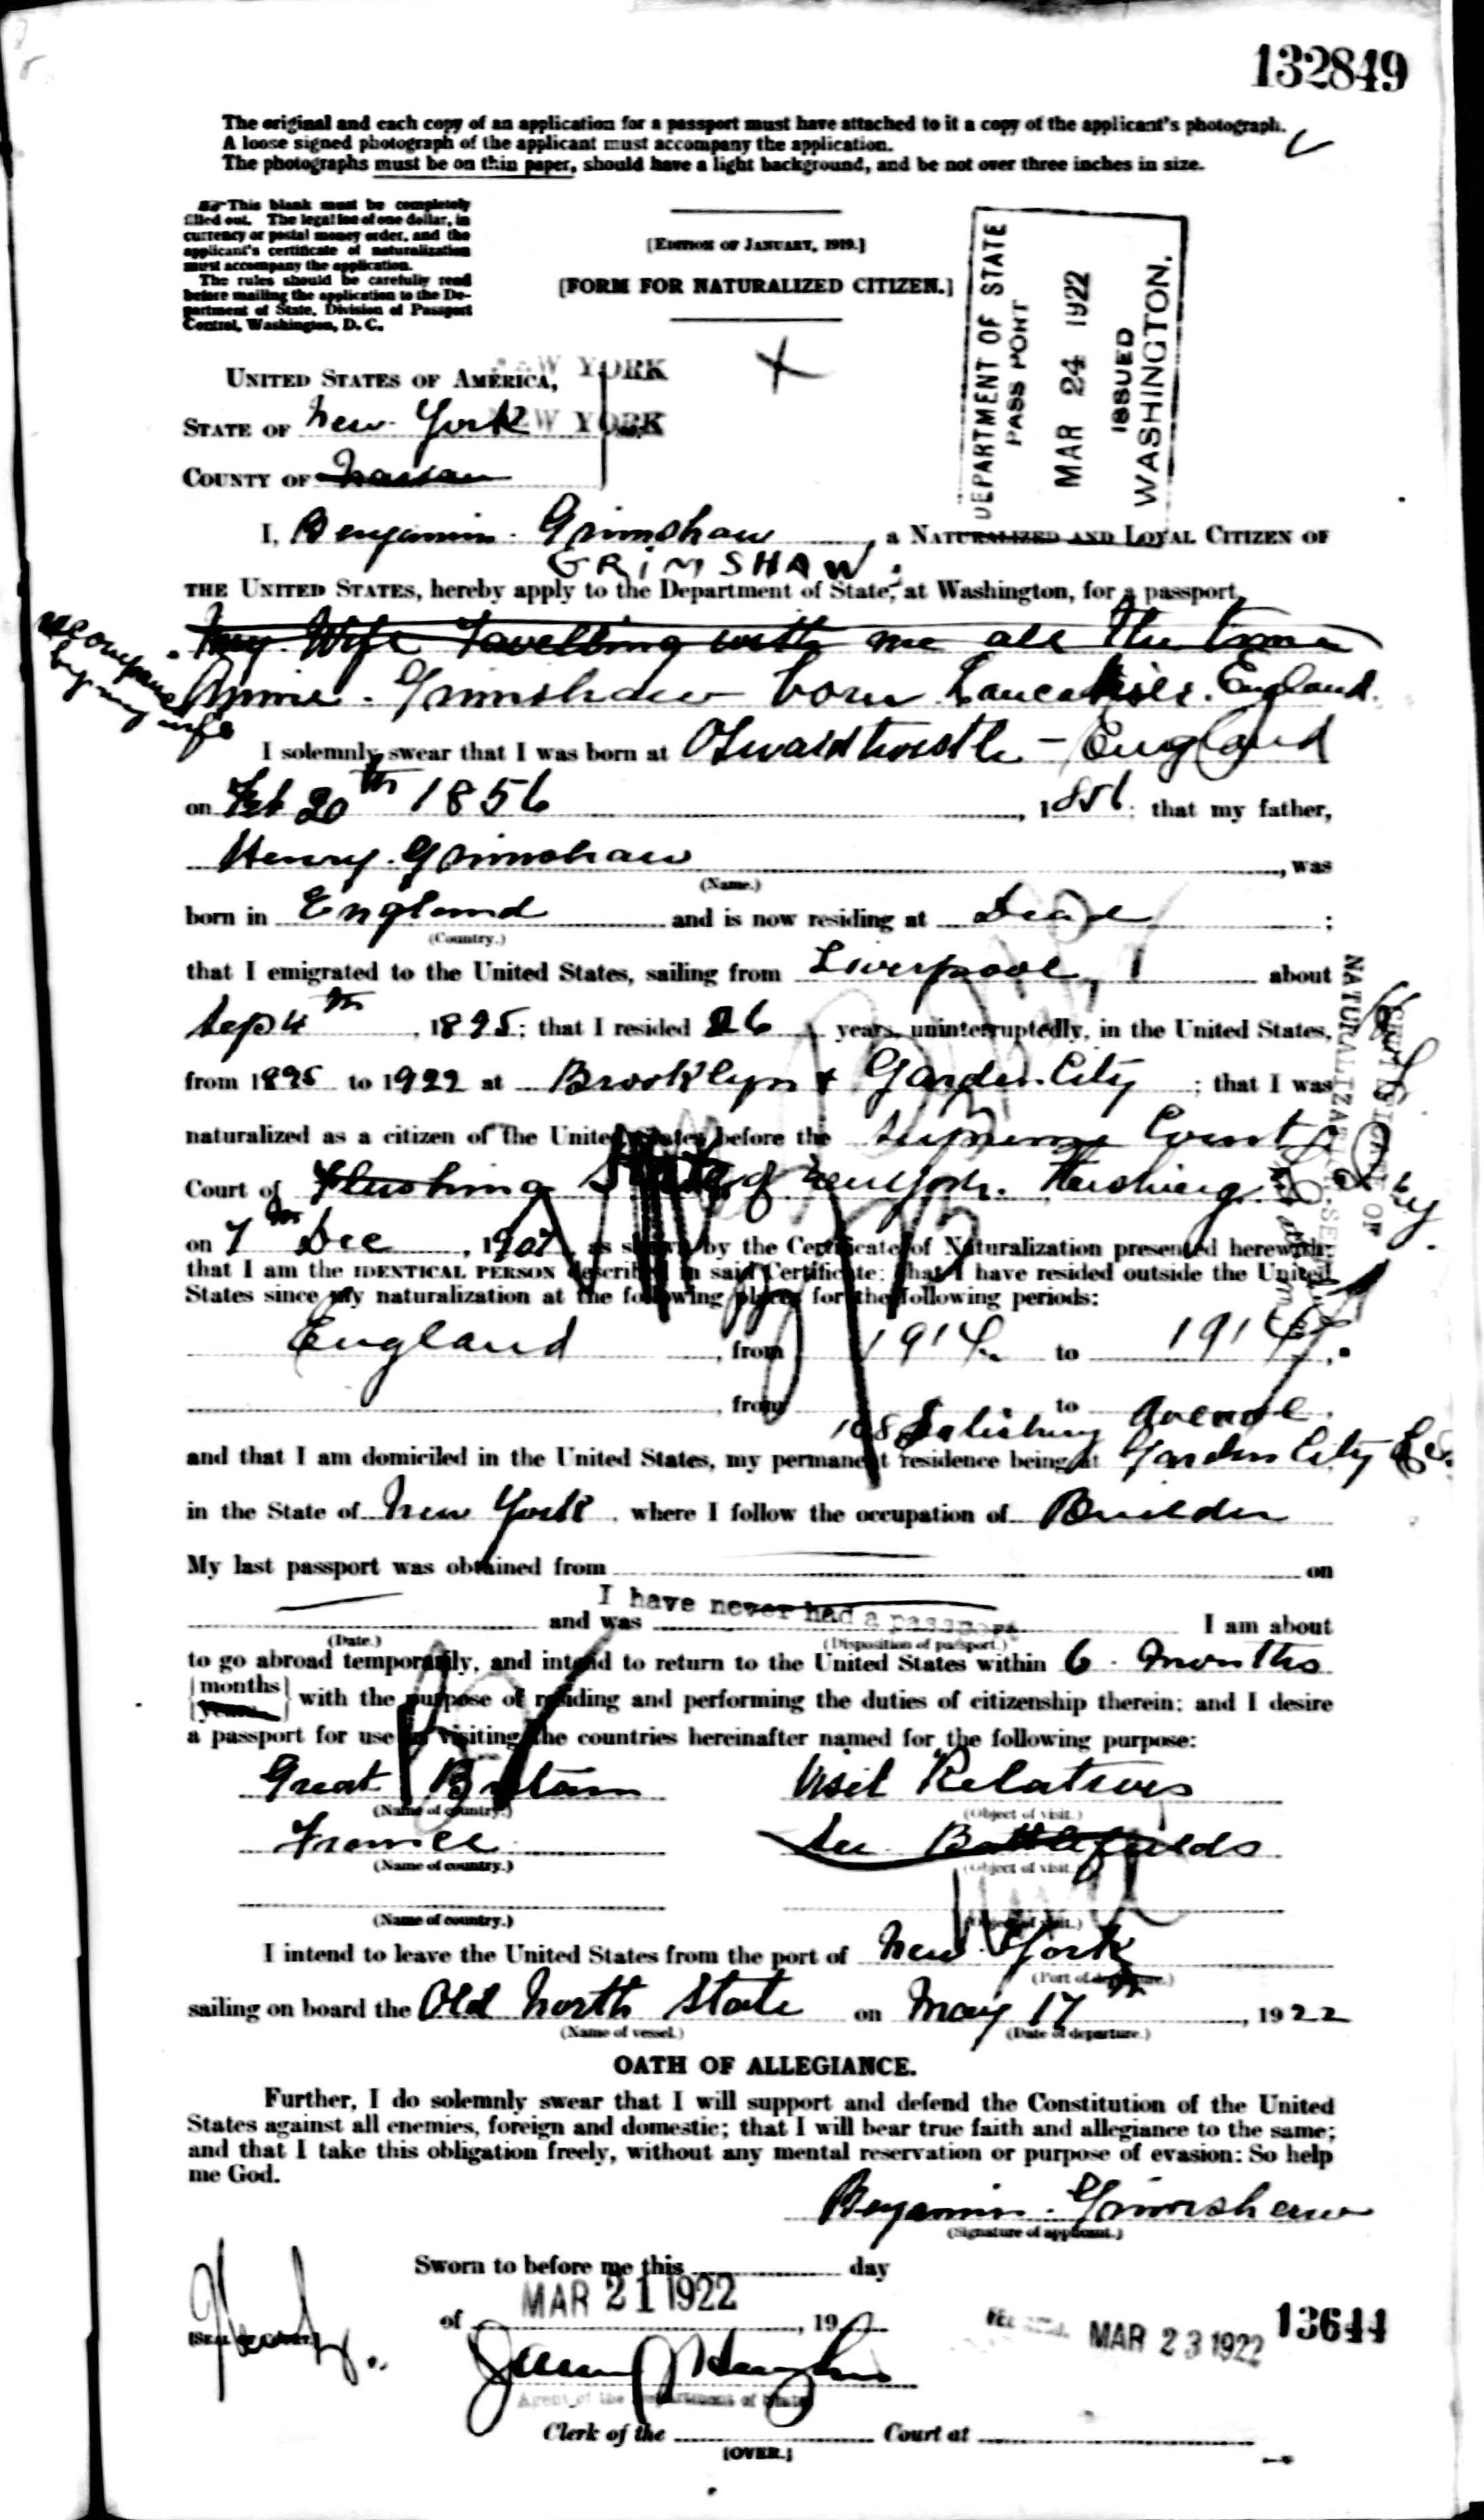 132849
The original and each copy of an application for a passport must have attached to it a copy of the applicant's photograph.
A loose signed photograph of the applicant must accompany the application.
The photographs must be on thin paper, should have a light background, and be not over three inches in size.
This blank must be completely
filled out. The legal fee of one dollar, in
currency or postal money order, and the
applicant's certificate of naturalization
must accompany the application.
The rules should be carefully read
before mailing the application to the De-
partment of State, Division of Passport
Control, Washington, D. C.
[EDITION OF JANUARY, 1919.]
[FORM FOR NATURALIZED CITIZEN.]
DEPARTMENT OF STATE
PASSPORT
MAR 24 1922
ISSUED
WASHINGTON.
UNITED STATES OF AMERICA, NEW YORK
STATE OF New York NEW YORK
COUNTY OF Nassau
I, Benjamin Grimshaw, a NATURALIZED AND LOYAL CITIZEN OF
GRIMSHAW
THE UNITED STATES, hereby apply to the Department of State, at Washington, for a passport
accompanied by my wife
My Wife Travelling with me all the time
Annie Grimshaw born Lancashire. England.
I solemnly swear that I was born at Oswaldtwistle - England
on Feb 20th 1856, 1856; that my father,
Henry Grimshaw, was
(Name.)
born in England and is now residing at Dead;
(Country.)
that I emigrated to the United States, sailing from Liverpool, about
Sep 4th, 1895; that I resided 26 years, uninterruptedly, in the United States,
from 1895 to 1922 at Brooklyn & Garden City; that I was
naturalized as a citizen of the United States before the Supreme Court
Court of Flushing State of New York. Flushing
on 7th Dec, 1907, as shown by the Certificate of Naturalization presented herewith;
that I am the IDENTICAL PERSON described in said Certificate; that I have resided outside the United
States since my naturalization at the following places for the following periods:
England, from 1914 to 1914.
, from to
168 Salisbury Avenue
and that I am domiciled in the United States, my permanent residence being at Garden City
in the State of New York, where I follow the occupation of Builder
My last passport was obtained from on
I have never had a passport
and was I am about
(Date.) (Disposition of passport.)
to go abroad temporarily, and intend to return to the United States within 6 months
{months
{years} with the purpose of residing and performing the duties of citizenship therein; and I desire
a passport for use in visiting the countries hereinafter named for the following purpose:
Great Britain Visit Relatives
(Name of country.) (Object of visit.)
France See Battlefields
(Name of country.) (Object of visit.)
(Name of country.) (Object of visit.)
I intend to leave the United States from the port of New York
(Port of departure.)
sailing on board the Old North State on May 17th, 1922
(Name of vessel.) (Date of departure.)
OATH OF ALLEGIANCE.
Further, I do solemnly swear that I will support and defend the Constitution of the United
States against all enemies, foreign and domestic; that I will bear true faith and allegiance to the same;
and that I take this obligation freely, without any mental reservation or purpose of evasion: So help
me God.
Benjamin Grimshaw
(Signature of applicant.)
Sworn to before me this day
of MAR 21 1922, 19
[SEAL OF COURT.]
MAR 23 1922 13644
Agent of the Department of State
Clerk of the Court at
[OVER.]